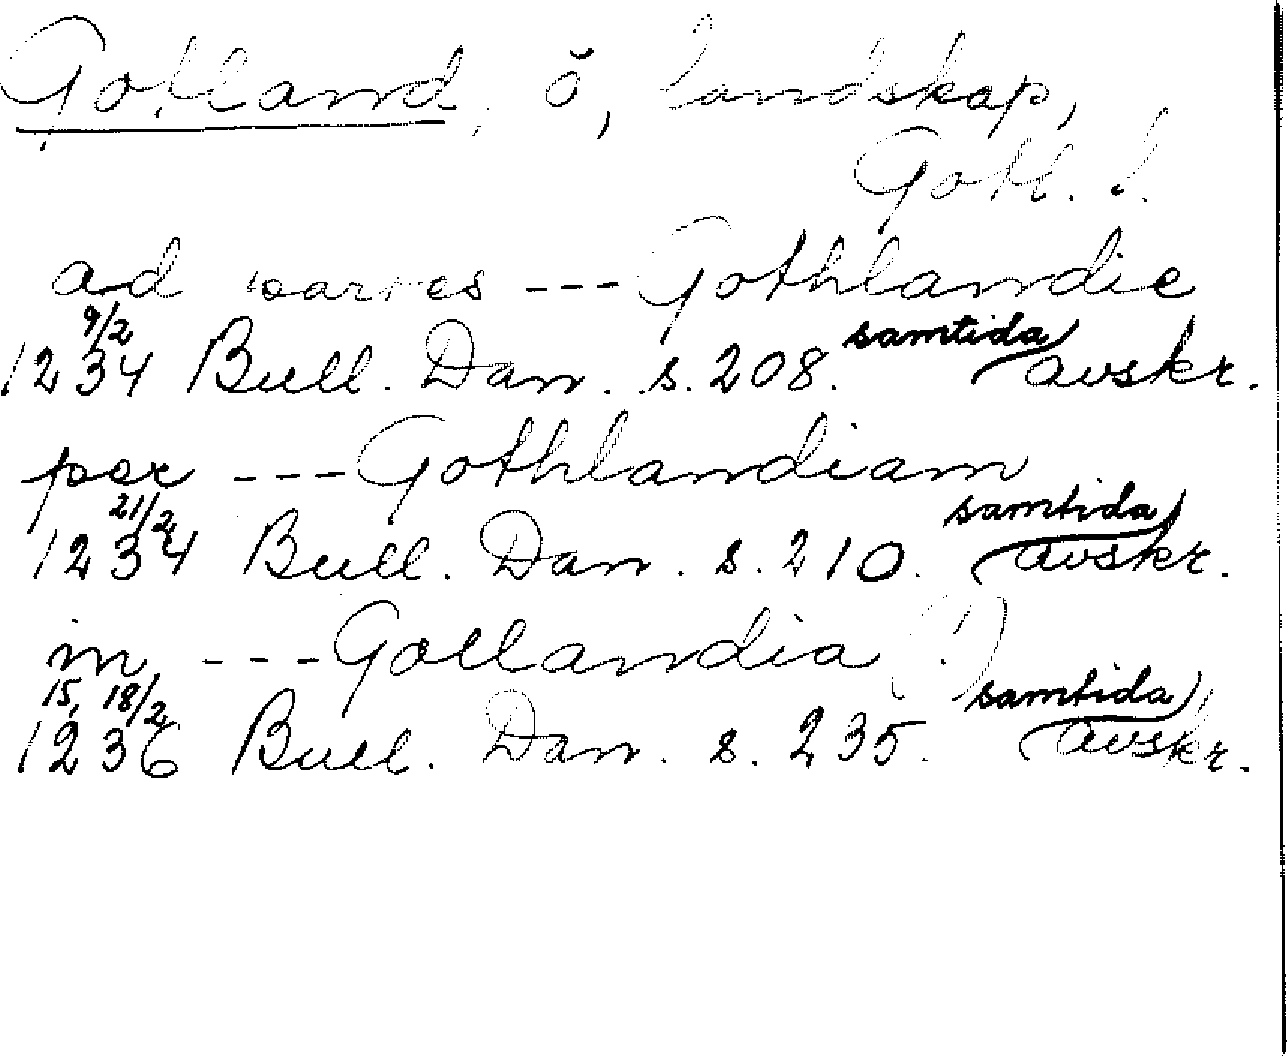 Gotland, ö, landskap,
Gotl. l.
ad partes --- Gothlandie
9/2
1234 Bull. Dan. s. 208. samtida avskr.
per --- Gothlandiam
21/2
1234 Bull. Dan. s. 210. samtida avskr.
in --- Gollandia (!)
15, 18/2
1236 Bull. Dan. s. 235. samtida avskr.